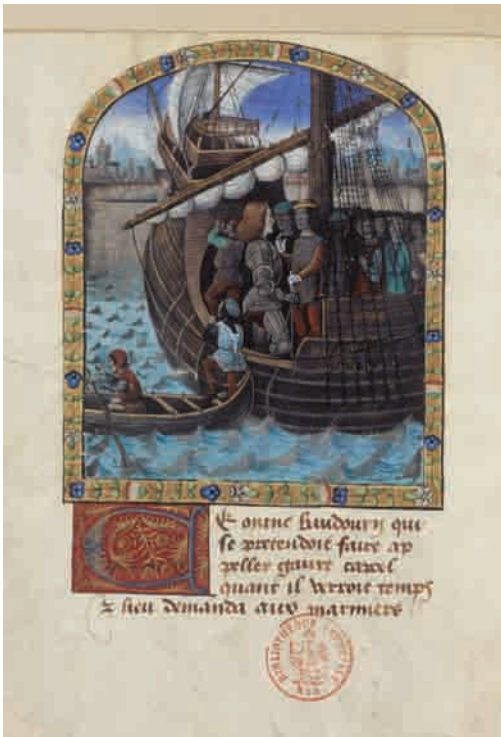 E conte baudouyn qui
se pretendoit faire ap
peller capel
quant il verroit temps
& lieu demanda aux mariniers